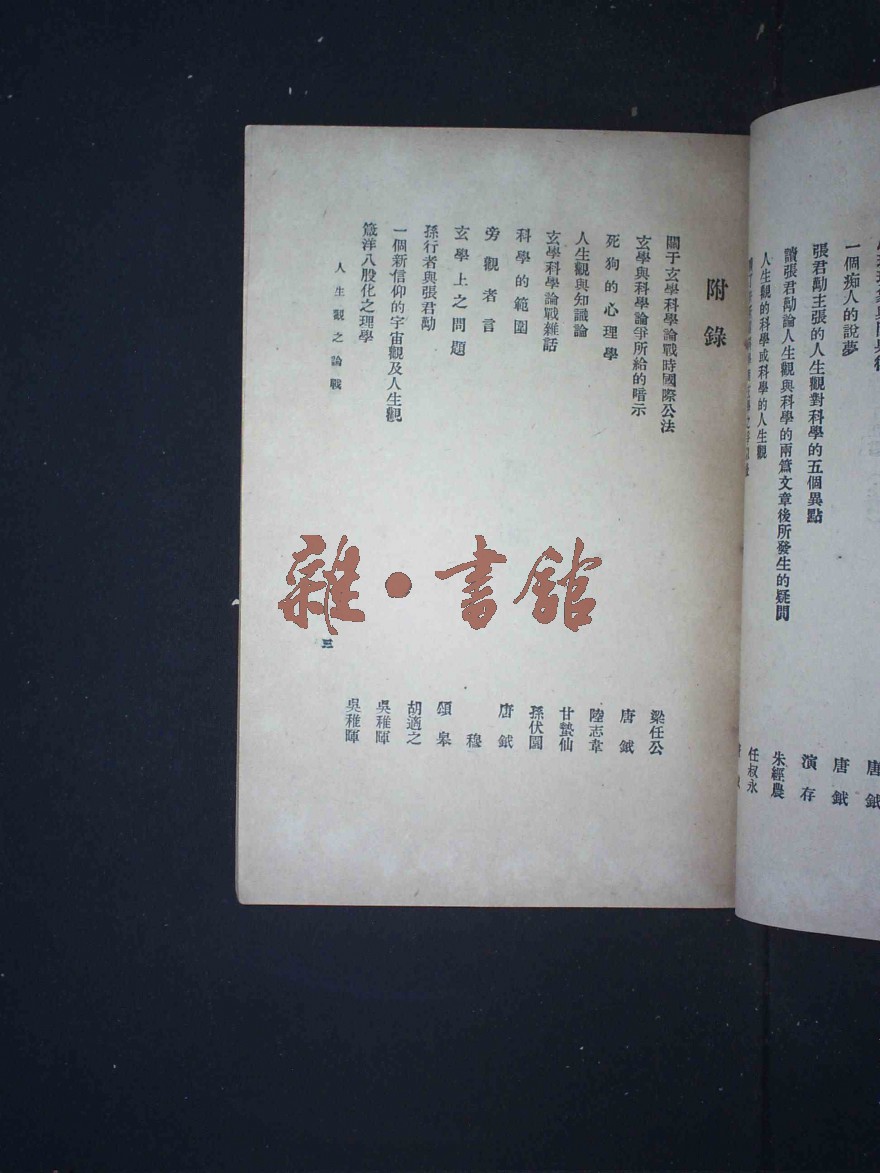 唐鉞
一個痴人的說夢 唐鉞
張君勱主張的人生觀對科學的五個異點 演存
讀張君勱論人生觀與科學的兩篇文章後所發生的疑問 朱經農
人生觀的科學或科學的人生觀 任叔永
附錄
關于玄學科學論戰時國際公法 梁任公
玄學與科學論爭所給的暗示 唐鉞
死狗的心理學 陸志韋
人生觀與知識論 甘蟄仙
玄學科學論戰雜話 孫伏園
科學的範圍 唐鉞
旁觀者言 穆
玄學上之問題 頌皋
孫行者與張君勱 胡適之
一個新信仰的宇宙觀及人生觀 吳稚暉
箴洋八股化之理學 吳稚暉
人生觀之論戰 三
雜·書館